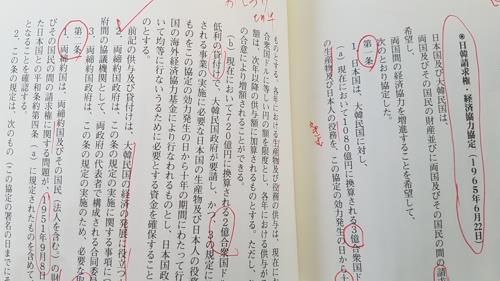 ◉日韓請求権・経済協力協定（1965年6月22日）
日本国及び大韓民国は、
両国及びその国民の財産並びに両国及びその国民の間の請
希望し、
両国間の経済協力を増進することを希望して、
次のとおり協定した。
第一条
1、日本国は、大韓民国に対し、
（a）現在において1080億円に換算される3億合衆国
の生産物及び日本人の役務を、この協定の効力発生の日から十
ものとする。各年における生産物及び役務の供与は、現におい
合衆国ドル
額は、次年以降の供与額に加算されるものとする。ただし、
の合意により増額されることができる。
（b）現在において720億円に換算される2億合衆国ド
低利の貸付けで、大韓民国政府が要請し、かつ、3の規定に
される事業の実施に必要な日本国の生産物及び日本人の役務
ものをこの協定の効力発生の日から十年の期間にわたって行
国の海外経済協力基金により行なわれるものとし、日本国政
いて均等に行ないうるために必要とする資金を確保すること
のとする。
前記の供与及び貸付けは、大韓民国の経済の発展に役立つ
2、両締約国政府は、この条の規定の実施に関する事項につ
府間の協議機関として、両政府の代表者で構成される合同委員
3、両締約国政府は、この条の規定の実施のため、必要な取
第二条
1、両締約国は、両締約国及びその国民（法人を含む）の財
びその国民の間の請求権に関する問題が、1951年9月8日
た日本国との平和条約第四条（a）に規定されたものを含めて
となることを確認する。
2、この条の規定は、次のもの（この協定の署名の日までにそ